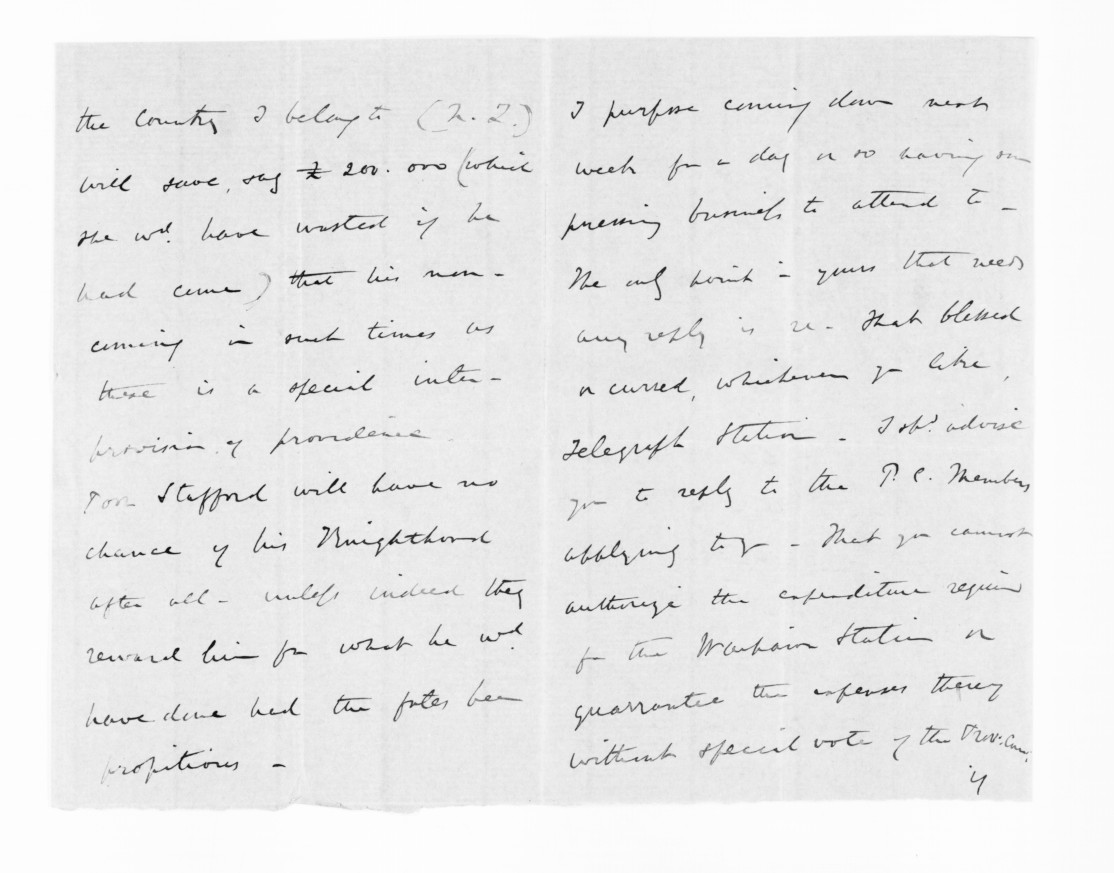 the Country I belong to (N. Z.)
will save, say £ 200.000 (which
she wd. have wasted if he
had come) that his non-
coming in such times as
these is a special inter-
provision of providence
Poor Stafford will have no
chance of his Knighthood
after all - unless indeed they
reward him for what he wd.
have done had the fates been
propitious -
I purpose coming down next
week for a day or so having some
pressing business to attend to -
The only point in yours that needs
any reply is re - that blessed
or cursed, whichever you like,
Telegraph Station - I shd. advise
you to reply to the P. C. Members
applying to you - that you cannot
authorize the expenditure required
for the Station or
guarrantee the expenses thereof
without special vote of the Prov: Coun: